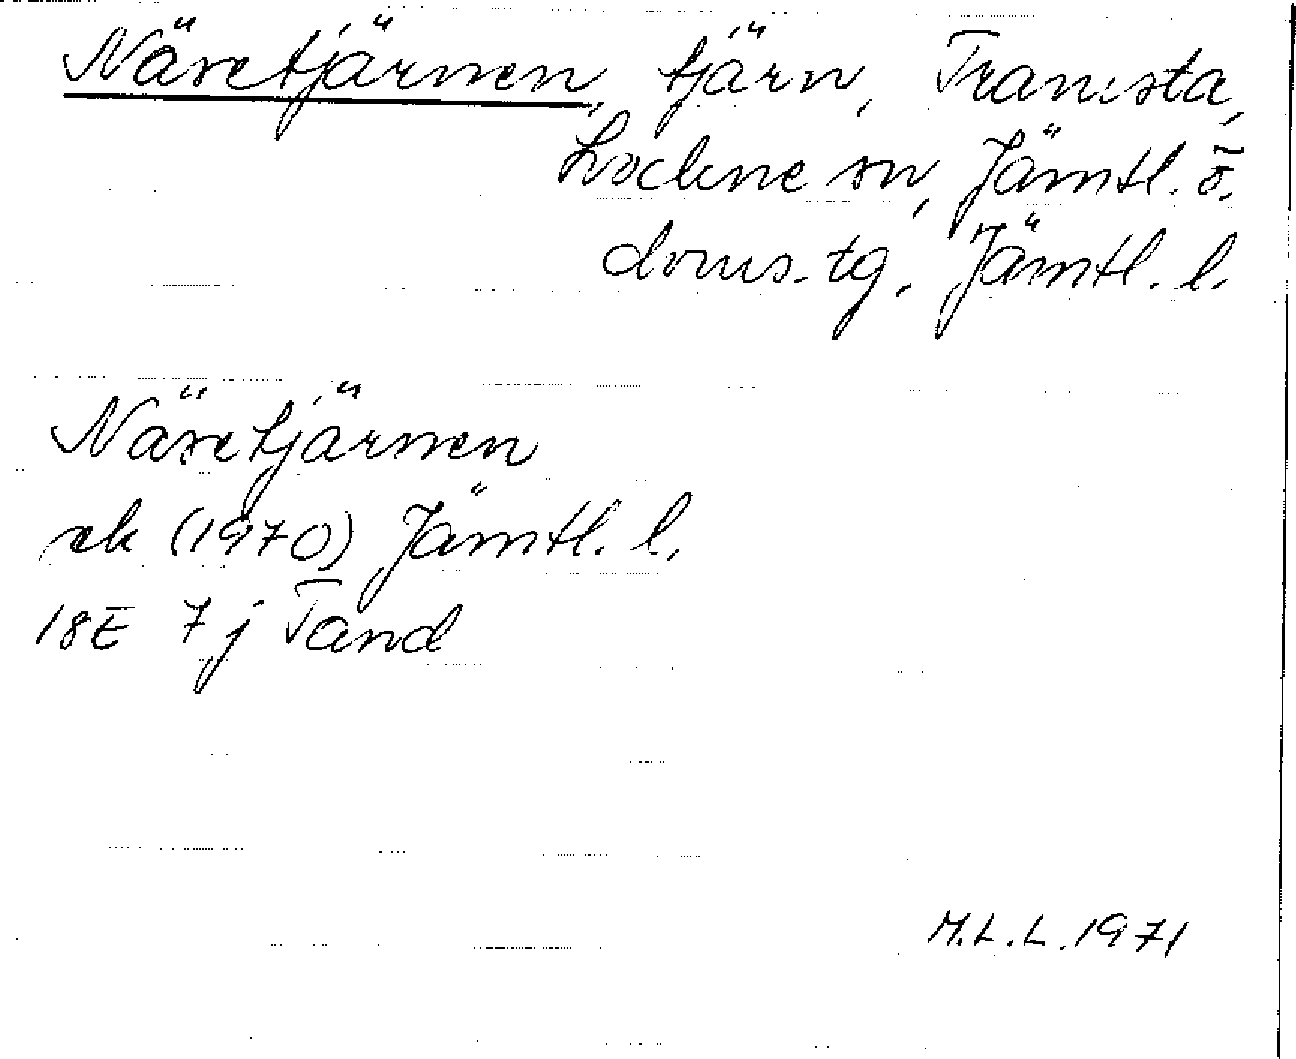 Näsetjärnen, tjärn, Tramsta,
Lockne sn, Jämtl. ö.
doms.tg, Jämtl. l.
Näsetjärnen
ek (1970) Jämtl. l.
18E 7j Tand
M.L.L. 1971